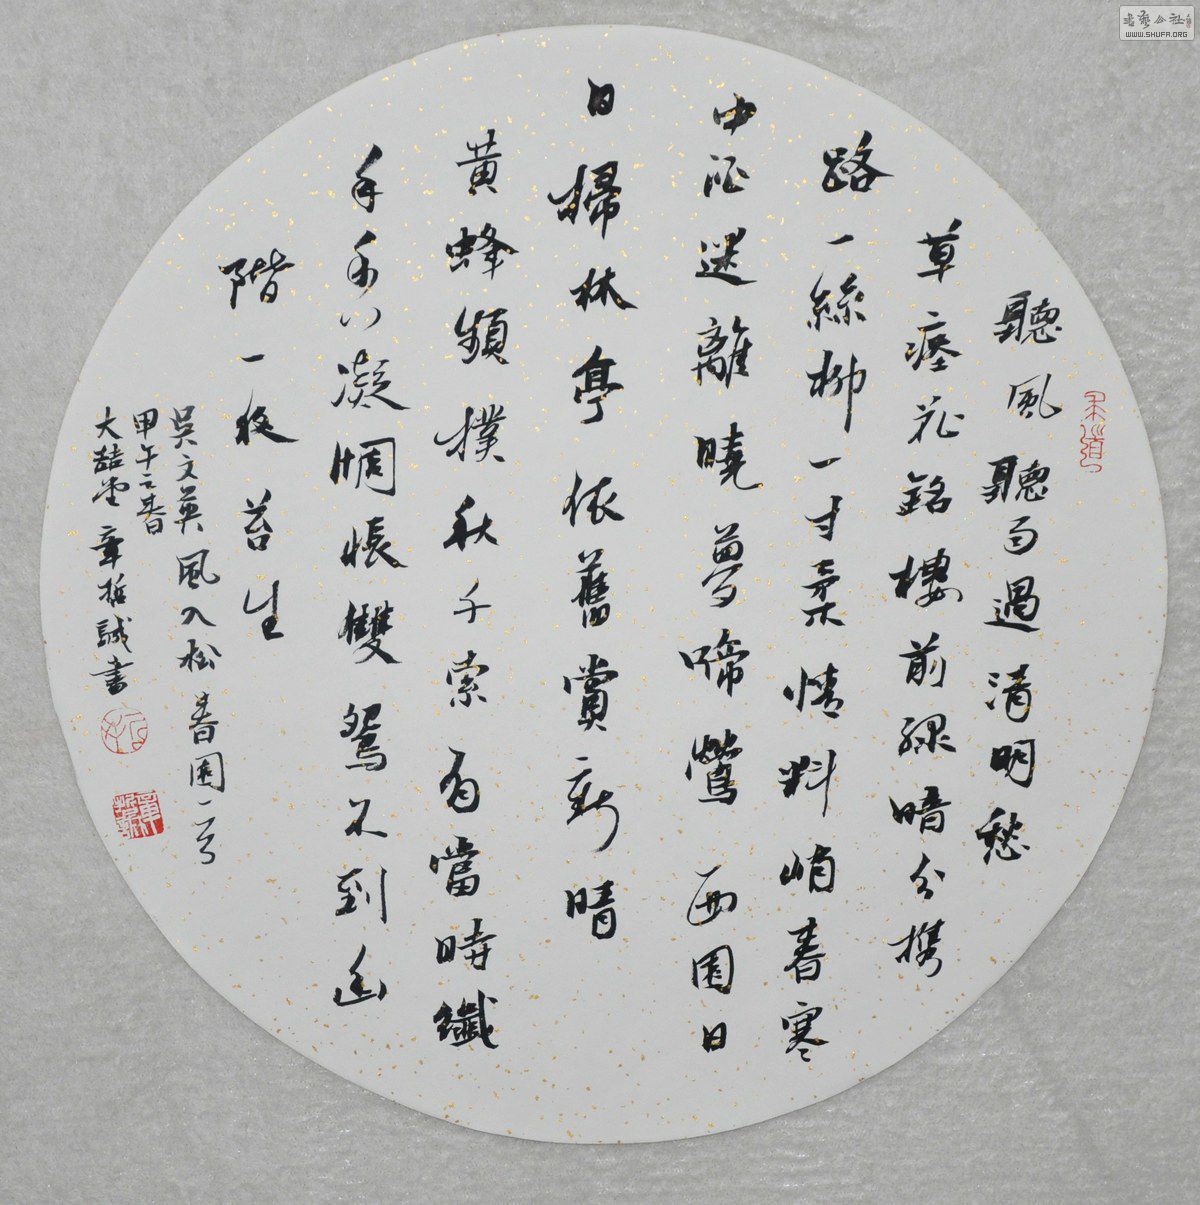 聽風聽雨過清明愁
草瘞花銘樓前綠暗分攜
路一絲柳一寸柔情料峭春寒
中酒迷離曉夢啼鶯西園日
日掃林亭依舊賞新晴
黃蜂頻撲秋千索有當時纖
手香凝惆悵雙鴛不到幽
階一夜苔生
吳文英風入松春園一首
甲午之春
大喆堂章哲誠書
書藝公社
WWW.SHUFA.ORG